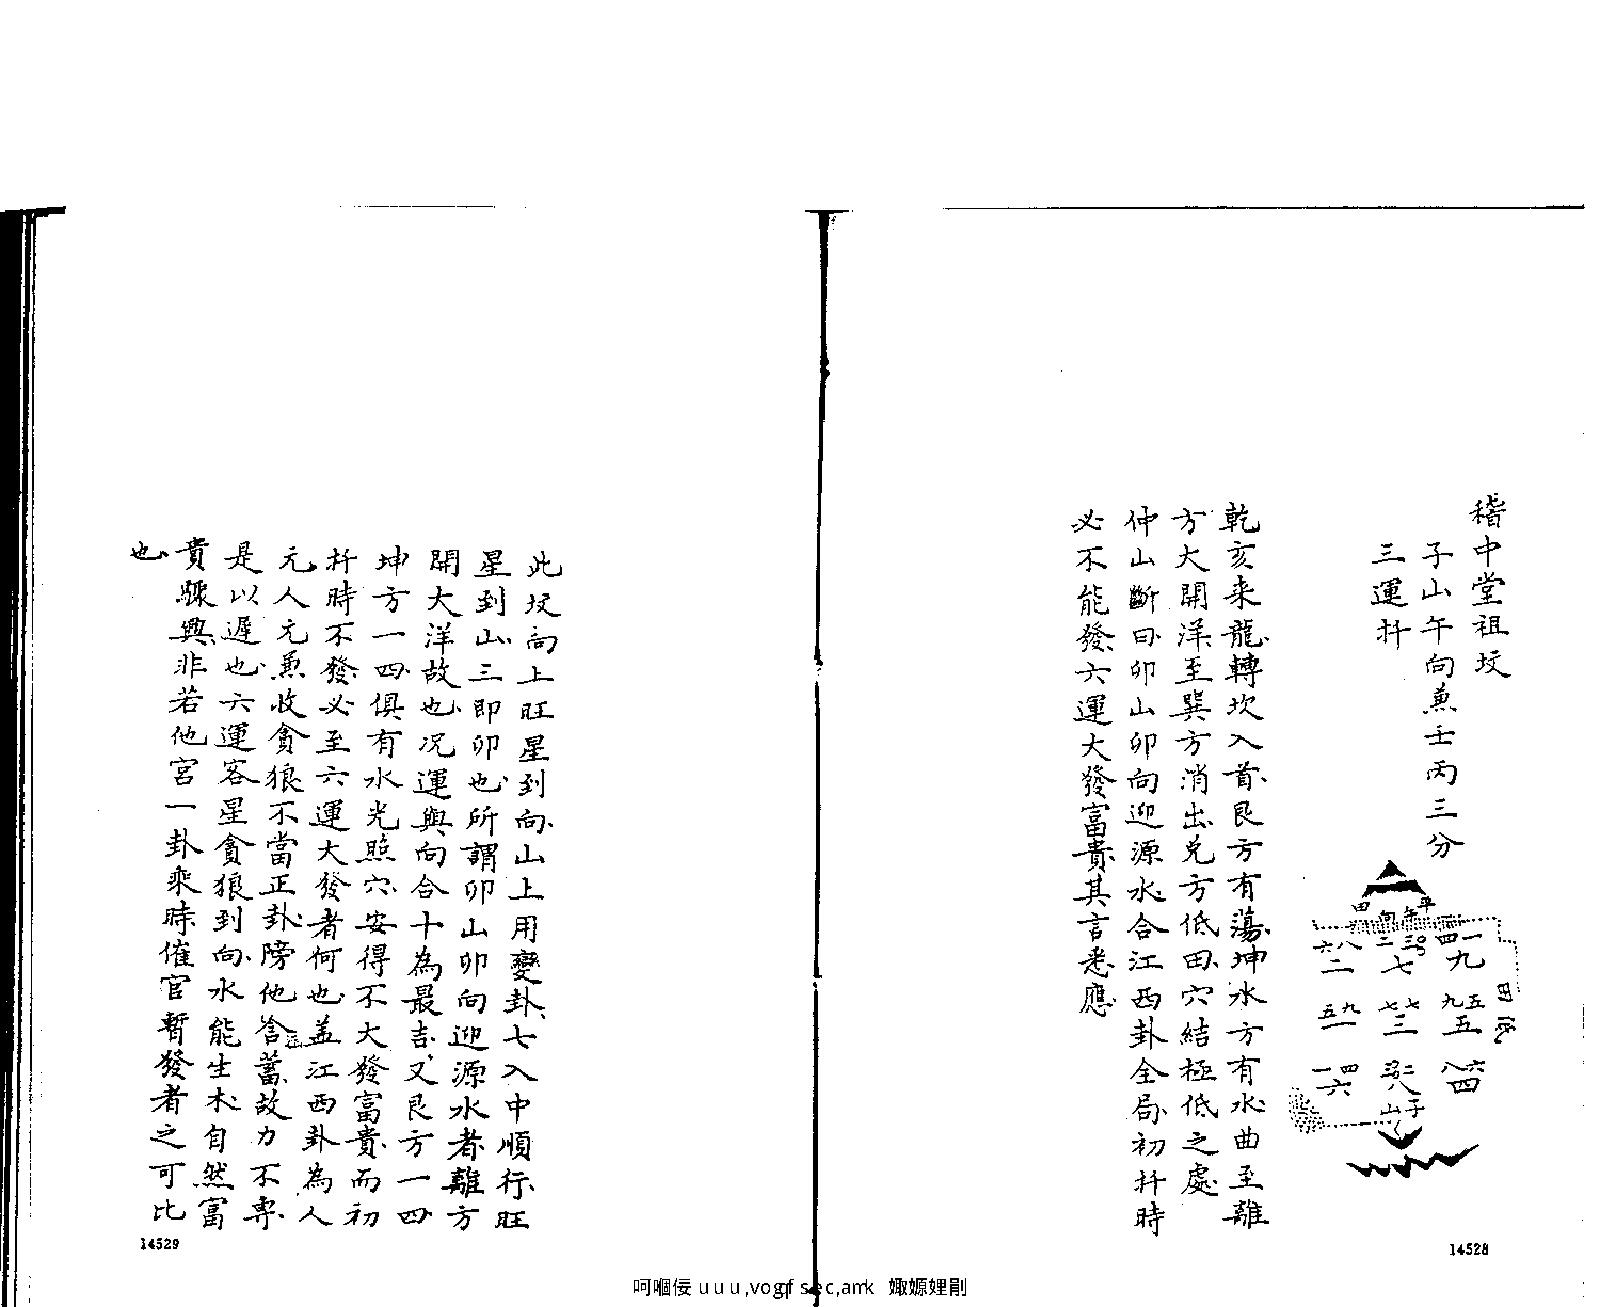 稽中堂祖坟
子山午向兼壬丙三分
三運扦
田
平
六八
二
七
四一
九
五九
一
七七
三
九五
五
一四
六
八
八六
四
山子
乾亥来龍轉坎入首艮方有蕩坤水方有水曲至離
方大開洋至巽方消出兌方低田穴結極低之處
仲山斷曰卯山卯向迎源水合江西卦全局初扦時
必不能發六運大發富貴其言悉應
14528
此坟向上旺星到向山上用變卦七入中順行旺
星到山三即卯也所謂卯山卯向迎源水者離方
開大洋故也况運與向合十為最吉又艮方一四
坤方一四俱有水光照穴安得不大發富貴而初
扦時不發必至六運大發者何也盖江西卦為人
元人元兼收貪狼不當正卦傍他含蓄故力不專
是以遲也六運客星貪狼到向水能生木自然富
貴驟興非若他宮一卦乘時催官暫發者之可比
也
14529